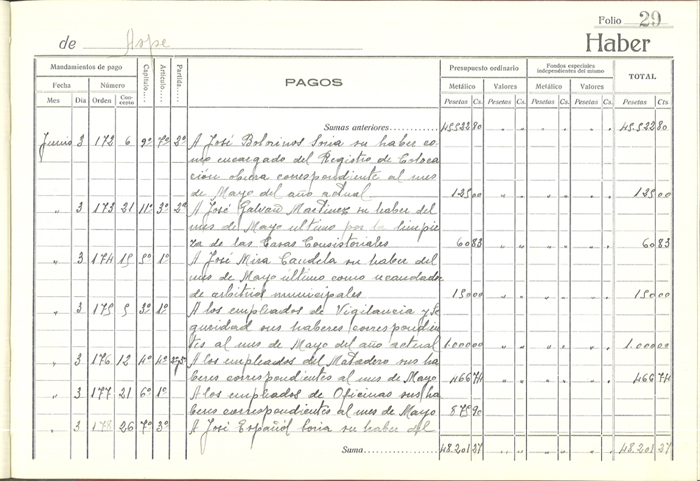 Folio 29
de Aspe Haber
Mandamientos de pago Capítulo.... Artículo.... Partida... PAGOS Presupuesto ordinario Fondos especiales independientes del mismo TOTAL
Fecha Número Metálico Valores Metálico Valores
Mes Día Orden Concepto Pesetas Cs. Pesetas Cs. Pesetas Cs. Pesetas Cs. Pesetas Cts
Sumas anteriores 45.522 80 " " " " " " 45.522 80
Junio 3 172 6 9º 7º 2º A José Bolorinos Soria su haber co-
mo encargado del Registro de Coloca-
ción obrera correspondiente al mes
de Mayo del año actual 125 00 " " " " " " 125 00
" 3 173 21 11º 3º 2º A José Galvañ Martinez su haber del
mes de Mayo ultimo por la limpie
za de las Casas Consistoriales 60 83 " " " " " " 60 83
" 3 174 15 5º 1º A José Mira Candela su haber del
mes de Mayo último como recaudador
de arbitrios municipales 150 00 " " " " " " 150 00
" 3 175 5 3º 1º A los empleados de Vigilancia y Se
guridad sus haberes correspondien
tes al mes de Mayo del año actual 1.000 00 " " " " " " 1.000 00
" 3 176 12 4º 4º A los empleados del Matadero sus ha
beres correspondientes al mes de Mayo 466 74 " " " " " " 466 74
" 3 177 21 6º 1º A los empleados de Oficinas sus ha
beres correspondientes al mes de Mayo 875 90
" 3 178 26 7º 3º A José Español Soria su haber del
Suma 48.201 27 " " " " " " 48.201 27